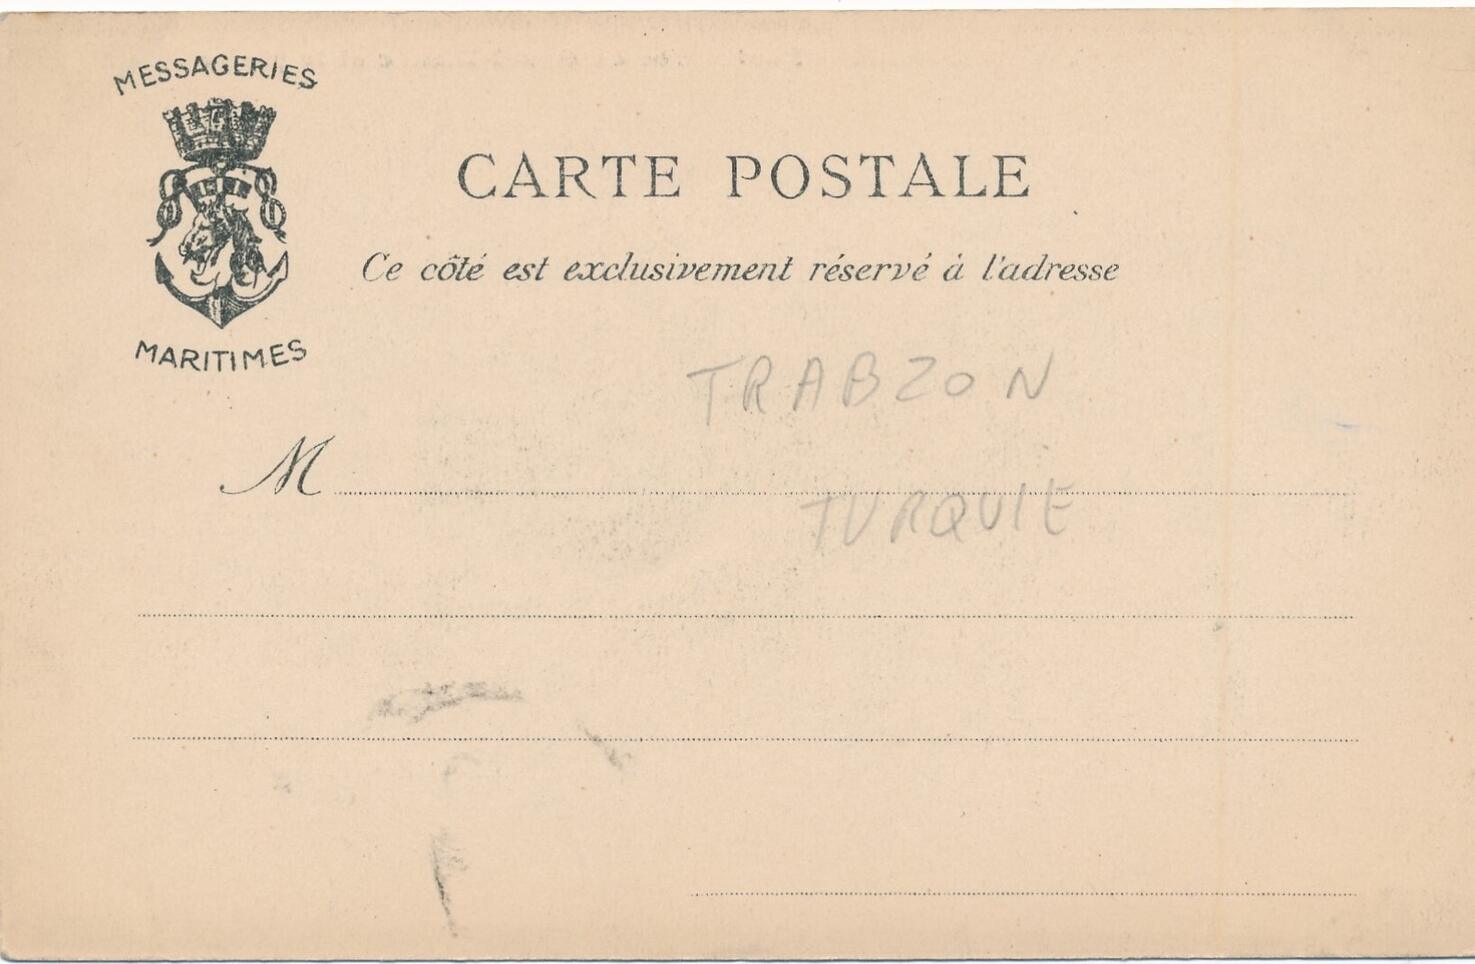 MESSAGERIES
MARITIMES
CARTE POSTALE
Ce côté est exclusivement réservé à l'adresse
TRABZON
M
TURQUIE